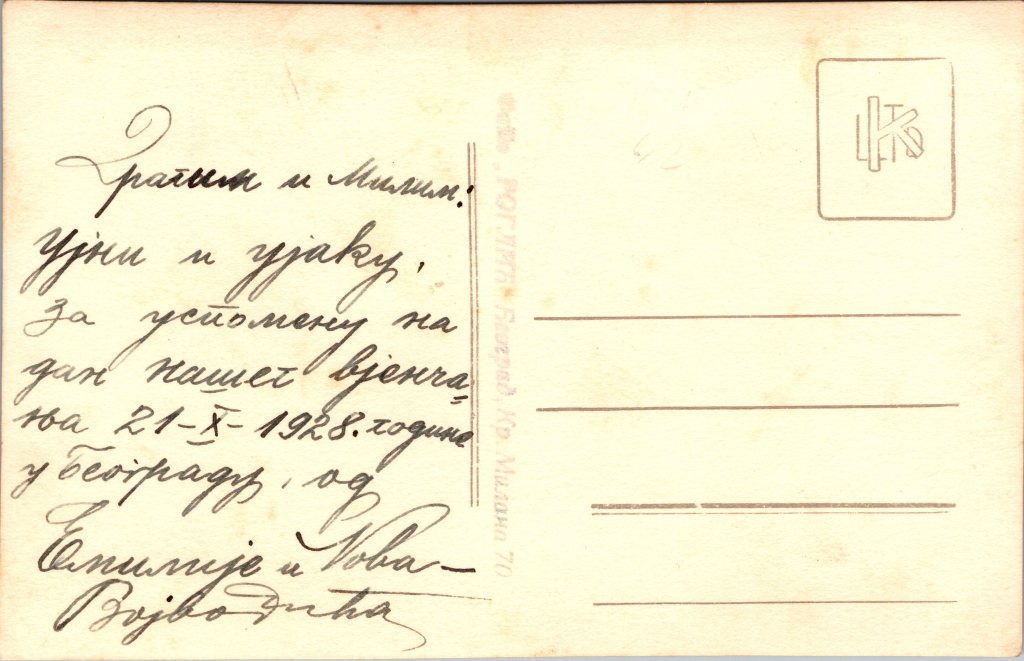 Драгим и Милим:
Ујни и ујаку,
За успомену на
дан нашег вјенча=
ња 21-X-1928. године
у Београду, од
Емилије и Нова
Војводића
Београд, Кр. Милана 70